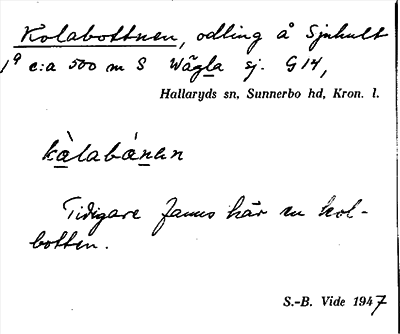 Kolabottnen, odling å Sjuhult
19 c:a 500 m S Vägla sj. G 14,
Hallaryds sn, Sunnerbo hd, Kron. l.
kòlabónen
Tidigare fanns här en kol-
botten.
S.-B. Vide 1947